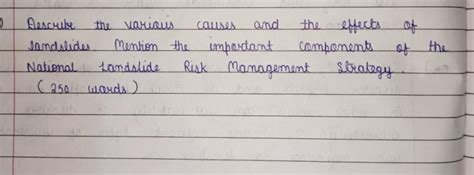 Describe the various causes and the effects of
landslides. Mention the important components of the
National Landslide Risk Management Strategy.
(250 words)